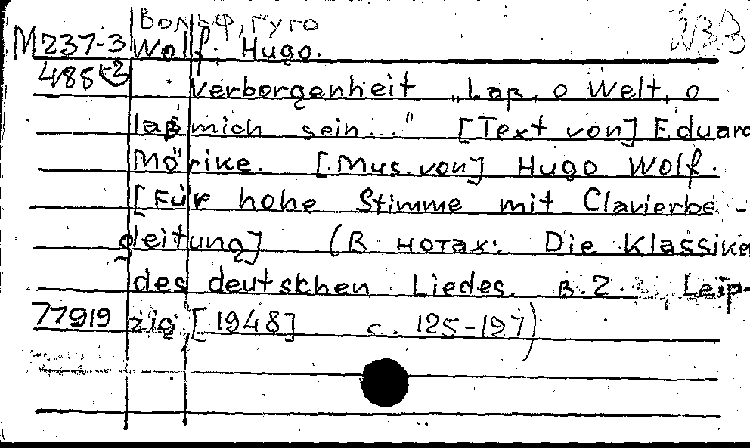 Вольф, Гуго
М237-3 Wolf. Hugo.
488
Verborgenheit „Laß, o Welt, o
laß mich sein..." [Text von] Eduard
Mörike. [Mus. von] Hugo Wolf.
[Für hohe Stimme mit Clavierbe-
gleitung] (В нотах: Die Klassike
des deutschen Liedes. B.2. Leip-
77919 zig [1948] с. 125-127)